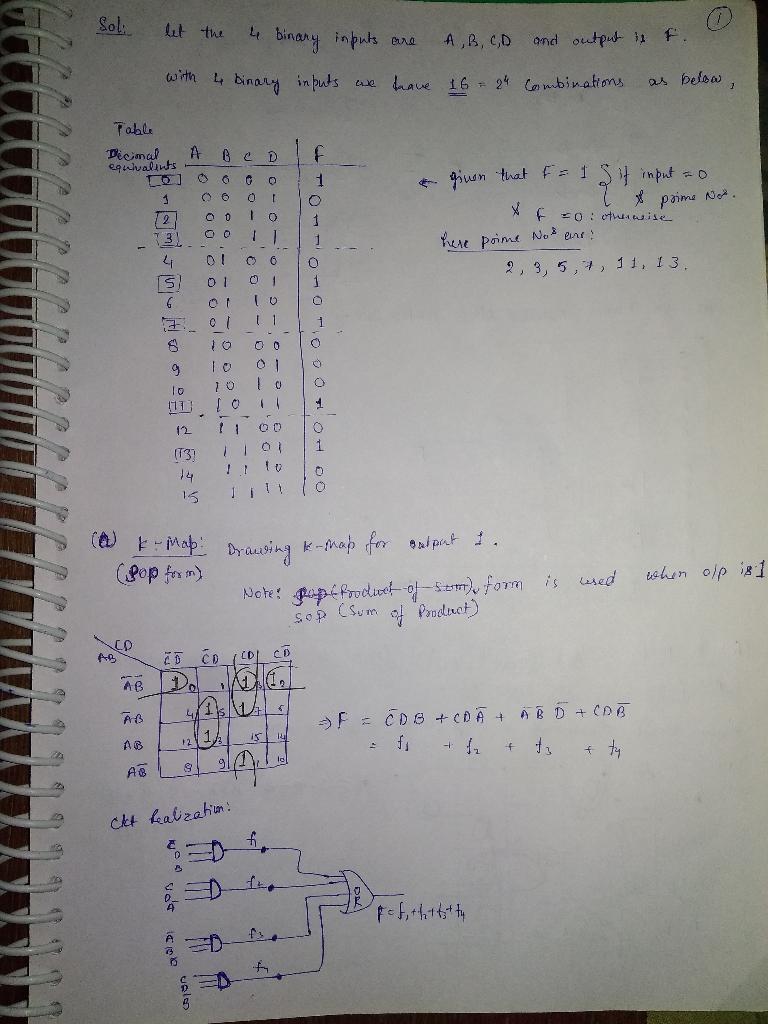 ①
Sol: let the 4 binary inputs are A, B, C, D and output is F.
with 4 binary inputs we have 16 = 2⁴ Combinations as below,
Table
Decimal equivalents A B C D F
0 0 0 0 0 1
1 0 0 0 1 0
2 0 0 1 0 1
3 0 0 1 1 1
4 0 1 0 0 0
5 0 1 0 1 1
6 0 1 1 0 0
7 0 1 1 1 1
8 1 0 0 0 0
9 1 0 0 1 0
10 1 0 1 0 0
11 1 0 1 1 1
12 1 1 0 0 0
13 1 1 0 1 1
14 1 1 1 0 0
15 1 1 1 1 0
← given that F = 1 { if input = 0
& prime Nos.
& F = 0 : otherwise
here prime Nos are:
2, 3, 5, 7, 11, 13.
(A) K-Map: Drawing K-map for output 1.
(SOP form)
Note: form is used when o/p is 1
SOP (Sum of Product)
CD
AB
C̄D̄ C̄D CD CD̄
ĀB̄ 1 0 1 1 3 1 2
ĀB 4 1 5 1 7 6
AB 12 1 13 15 14
AB̄ 8 9 1 11 10
⇒ F = C̄DB + CDĀ + ĀB̄D̄ + CDB̄
= f₁ + f₂ + f₃ + f₄
Ckt Realization:
C̄ D B f₁
C D Ā f₂
OR
F = f₁+f₂+f₃+f₄
Ā B̄ D̄ f₃
C D B̄ f₄